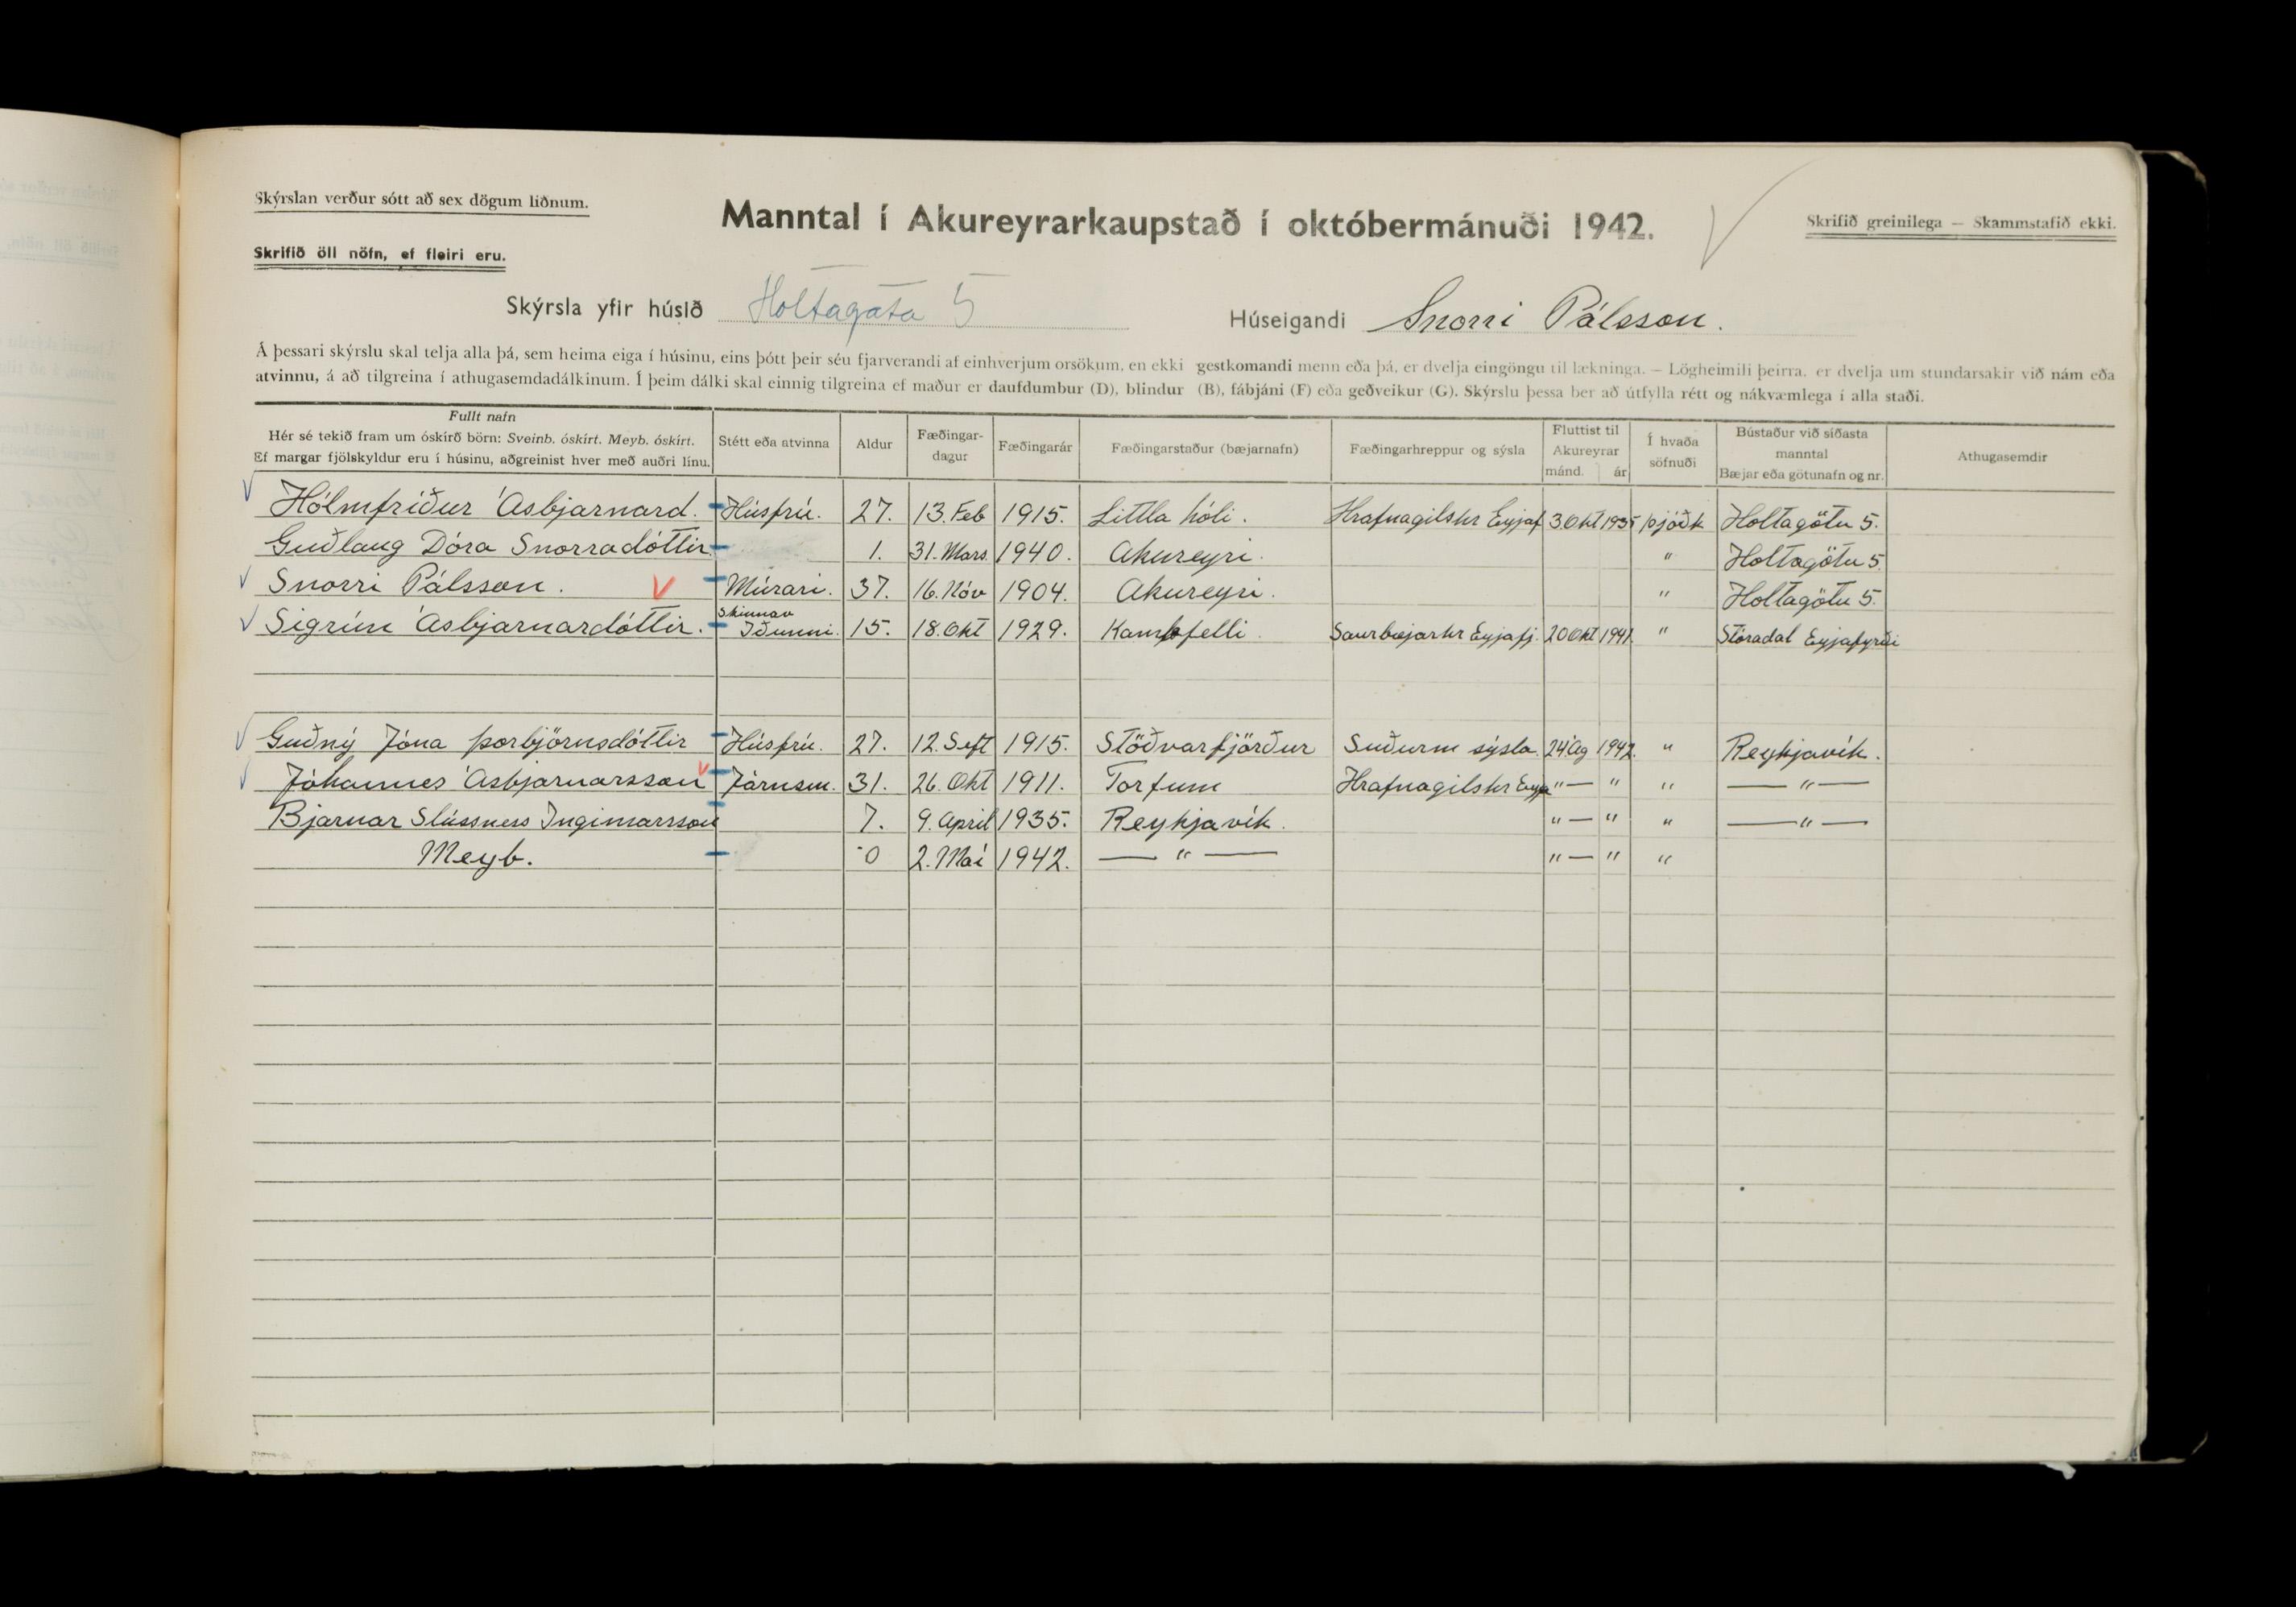 Skýrslan verður sótt að sex dögum liðnum.
Manntal í Akureyrarkaupstað í októbermánuði 1942.
Skrifið greinilega — Skammstafið ekki.
Skrifið öll nöfn, ef fleiri eru.
Skýrsla yfir húsið Holtagata 5
Húseigandi Snorri Pálsson.
Á þessari skýrslu skal telja alla þá, sem heima eiga í húsinu, eins þótt þeir séu fjarverandi af einhverjum orsökum, en ekki gestkomandi menn eða þá, er dvelja eingöngu til lækninga. — Lögheimili þeirra. er dvelja um stundarsakir við nám eða
atvinnu, á að tilgreina í athugasemdadálkinum. Í þeim dálki skal einnig tilgreina ef maður er daufdumbur (D), blindur (B), fábjáni (F) eða geðveikur (G). Skýrslu þessa ber að útfylla rétt og nákvæmlega í alla staði.
Fullt nafn
Hér sé tekið fram um óskírð börn: Sveinb. óskírt. Meyb. óskírt.
Ef margar fjölskyldur eru í húsinu, aðgreinist hver með auðri línu.
Stétt eða atvinna
Aldur
Fæðingar-
dagur
Fæðingarár
Fæðingarstaður (bæjarnafn)
Fæðingarhreppur og sýsla
Fluttist til
Akureyrar
mánd. ár
Í hvaða
söfnuði
Bústaður við síðasta
manntal
Bæjar eða götunafn og nr.
Athugasemdir
Hólmfríður Ásbjarnard. Húsfrú. 27. 13. Feb 1915. Littla hóli. Hrafnagilshr Eyjaf 3 Okt 1935 þjóðk Holtagötu 5.
Guðlaug Dóra Snorradóttir 1. 31. Mars 1940. Akureyri. " Holtagötu 5.
Snorri Pálsson. Múrari. 37. 16. Nóv 1904. Akureyri. " Holtagötu 5.
Sigrún Ásbjarnardóttir. Skinnav Iðunni. 15. 18. Okt 1929. Kambfelli. Saurbæjarhr Eyjafj. 20 Okt 1941. " Stóradal Eyjafyrði
Guðný Jóna Þorbjörnsdóttir Húsfrú. 27. 12. Sept 1915. Stöðvarfjörður Suðurm sýsla. 24 Ág 1942. " Reykjavík.
Jóhannes Ásbjarnarsson Járnsm. 31. 26. Okt 1911. Torfum Hrafnagilshr Eyja "— " " — " —
Bjarnar Ingimarsson 7. 9. April 1935. Reykjavík. "— " " — " —
Meyb. 0 2. Maí 1942. — " — "— " "